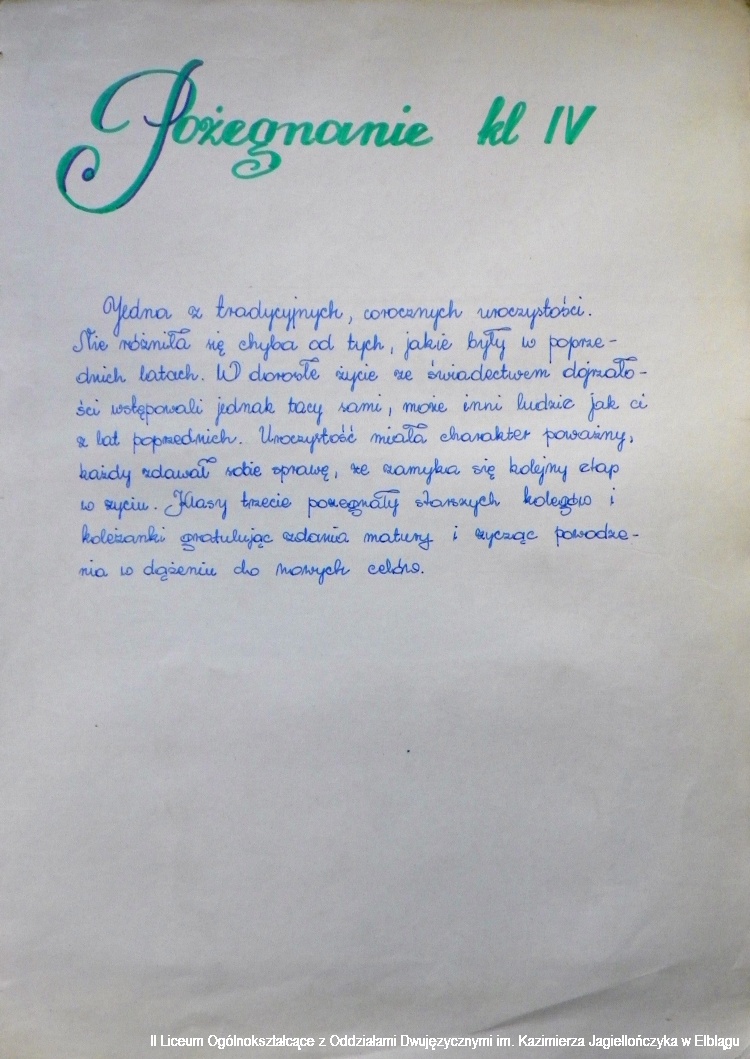 Pożegnanie kl IV
Jedna z tradycyjnych, corocznych uroczystości.
Nie różniła się chyba od tych, jakie były w poprze-
dnich latach. W dorosłe życie ze świadectwem dojrzało-
ści wstępowali jednak tacy sami, może inni ludzie jak ci
z lat poprzednich. Uroczystość miała charakter poważny,
każdy zdawał sobie sprawę, że zamyka się kolejny etap
w życiu. Klasy trzecie pożegnały starszych kolegów i
koleżanki gratulując zdania matury i życząc powodze-
nia w dążeniu do nowych celów.
II Liceum Ogólnokształcące z Oddziałami Dwujęzycznymi im. Kazimierza Jagiellończyka w Elblągu